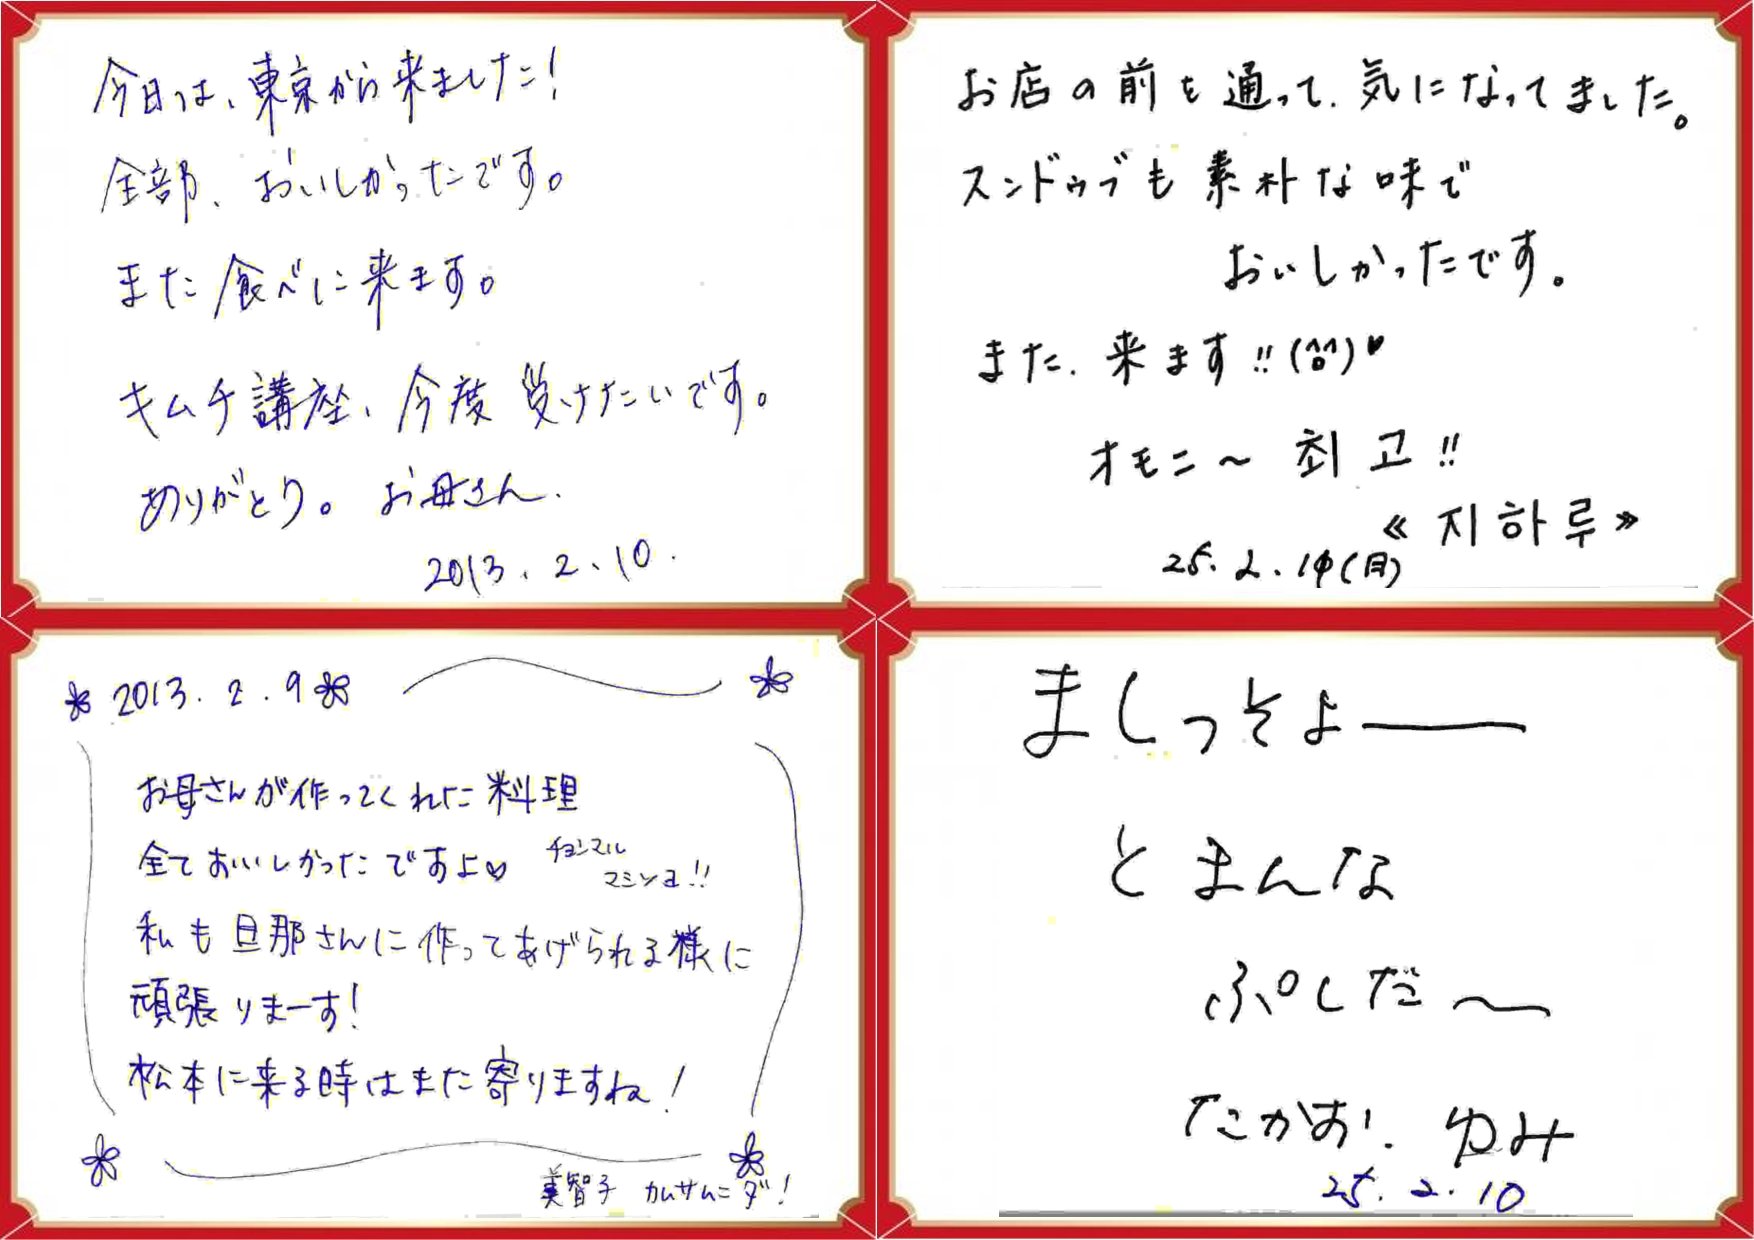 今日は、東京から来ました！
全部、おいしかったです。
また食べに来ます。
キムチ講座、今度受けたいです。
ありがとう。お母さん.
2013.2.10.
お店の前を通って、気になってました。
スンドゥブも素朴な味で
おいしかったです。
また、来ます!!(^ㅇ^)♥
オモニ〜 최고!!
≪지하루≫
25.2.14(月)
2013.2.9
お母さんが作ってくれた料理
全ておいしかったですよ♡ チョンマル
マシソヨ!!
私も旦那さんに作ってあげられる様に
頑張りまーす！
松本に来る時はまた寄りますね！
美智子 カムサムニダ！
ましっそよー
とまんな
ぷしだ〜
たかお. ゆみ
25.2.10